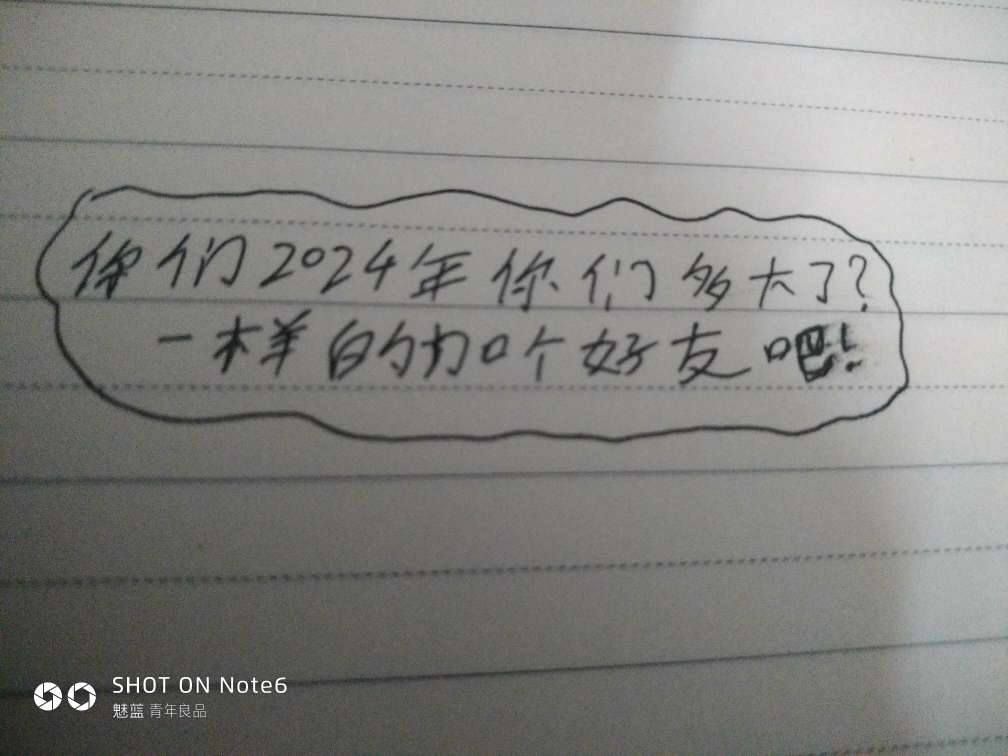 你们2024年你们多大了?
一样的加个好友吧!
SHOT ON Note6
魅蓝 青年良品